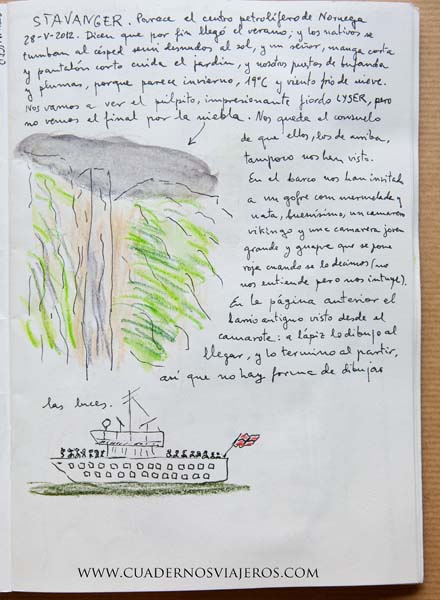 STAVANGER. Parece el centro petrolífero de Noruega
28-V-2012. Dicen que por fin llegó el verano; y los nativos se
tumban al césped semi desnudos al sol, y un señor, manga corta
y pantalón corto cuida el jardín, y nosotros puestos de bufanda
y plumas, porque parece invierno, 19°C y viento frío de nieve.
Nos vamos a ver el púlpito, impresionante fiordo LYSER, pero
no vemos el final por la niebla. Nos queda el consuelo
de que ellos, los de arriba,
tampoco nos han visto.
En el barco nos han invitado
a un gofre con mermelada y
nata, buenísimo, un camarero
vikingo y una camarera joven
grande y guapa que se pone
roja cuando se lo decimos (no
nos entiende pero nos intuye).
En la página anterior el
barrio antiguo visto desde el
camarote: a lápiz lo dibujo al
llegar, y lo termino al partir,
así que no hay forma de dibujar
las luces.
WWW.CUADERNOSVIAJEROS.COM